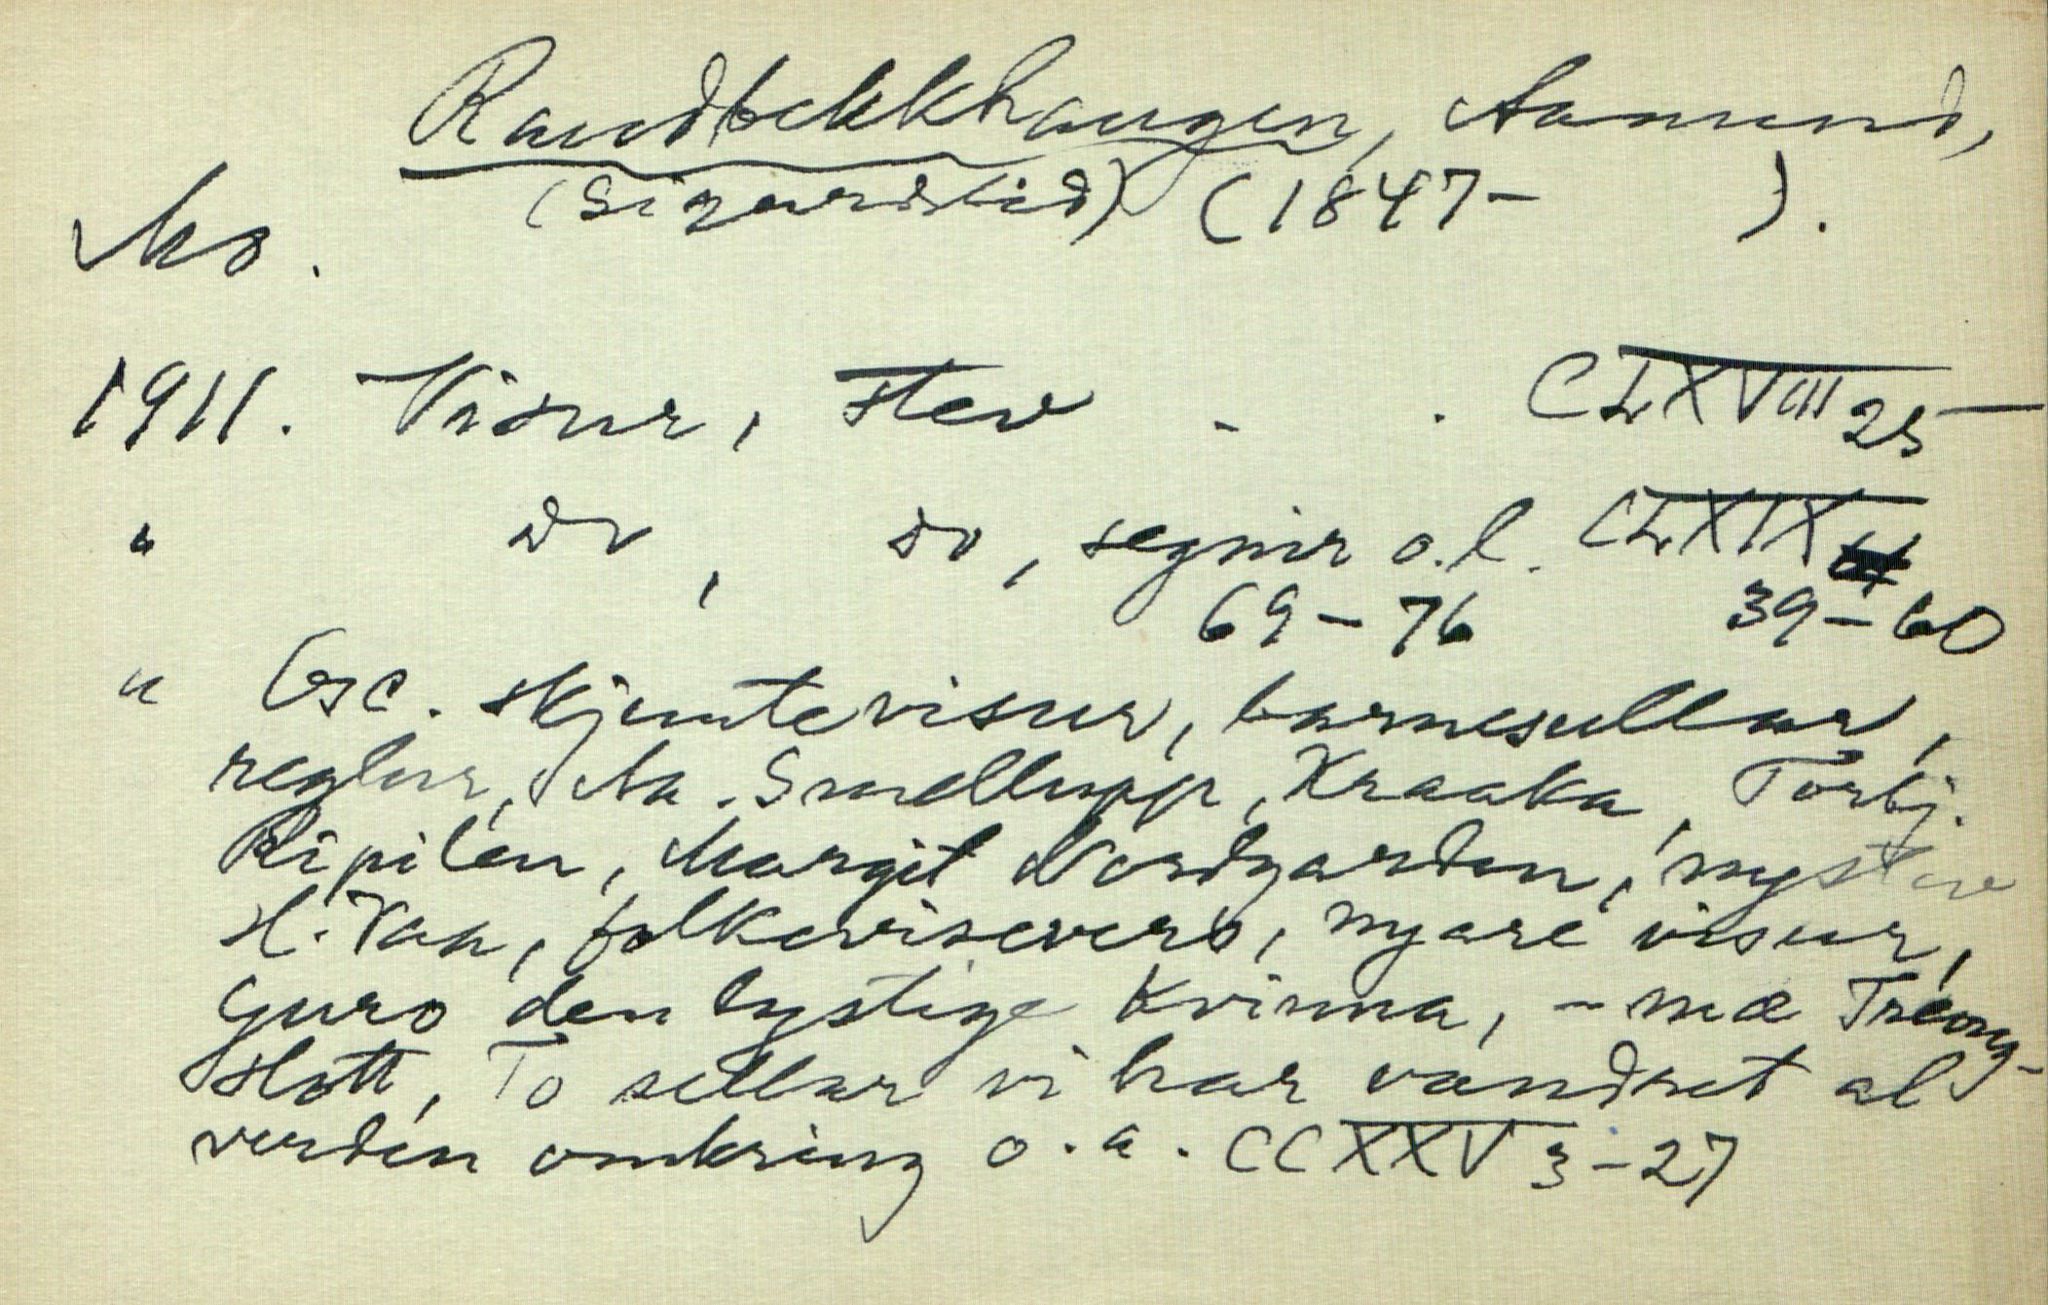 Raudbekkhaugen, Aamund,
(Sigurdslid) (1847- ).
Mo.
1911. Visur, stev - . CLXVIII 25-
" do, do, segnir o.l. CLXIX
69-76 39-60
" Esc. skjemtevisur, barnesullar,
reglur, Aa. Smellupp, Kraaka, Torbj.
Ripilen, Margit Nordgarden, nystev
H. Vaa, folkevisevers, nyare visur,
Guro den lystige Kvinna, - mæ
slott, To sillar vi har vandret al
verden omkring o.a. CCXXV 3-27